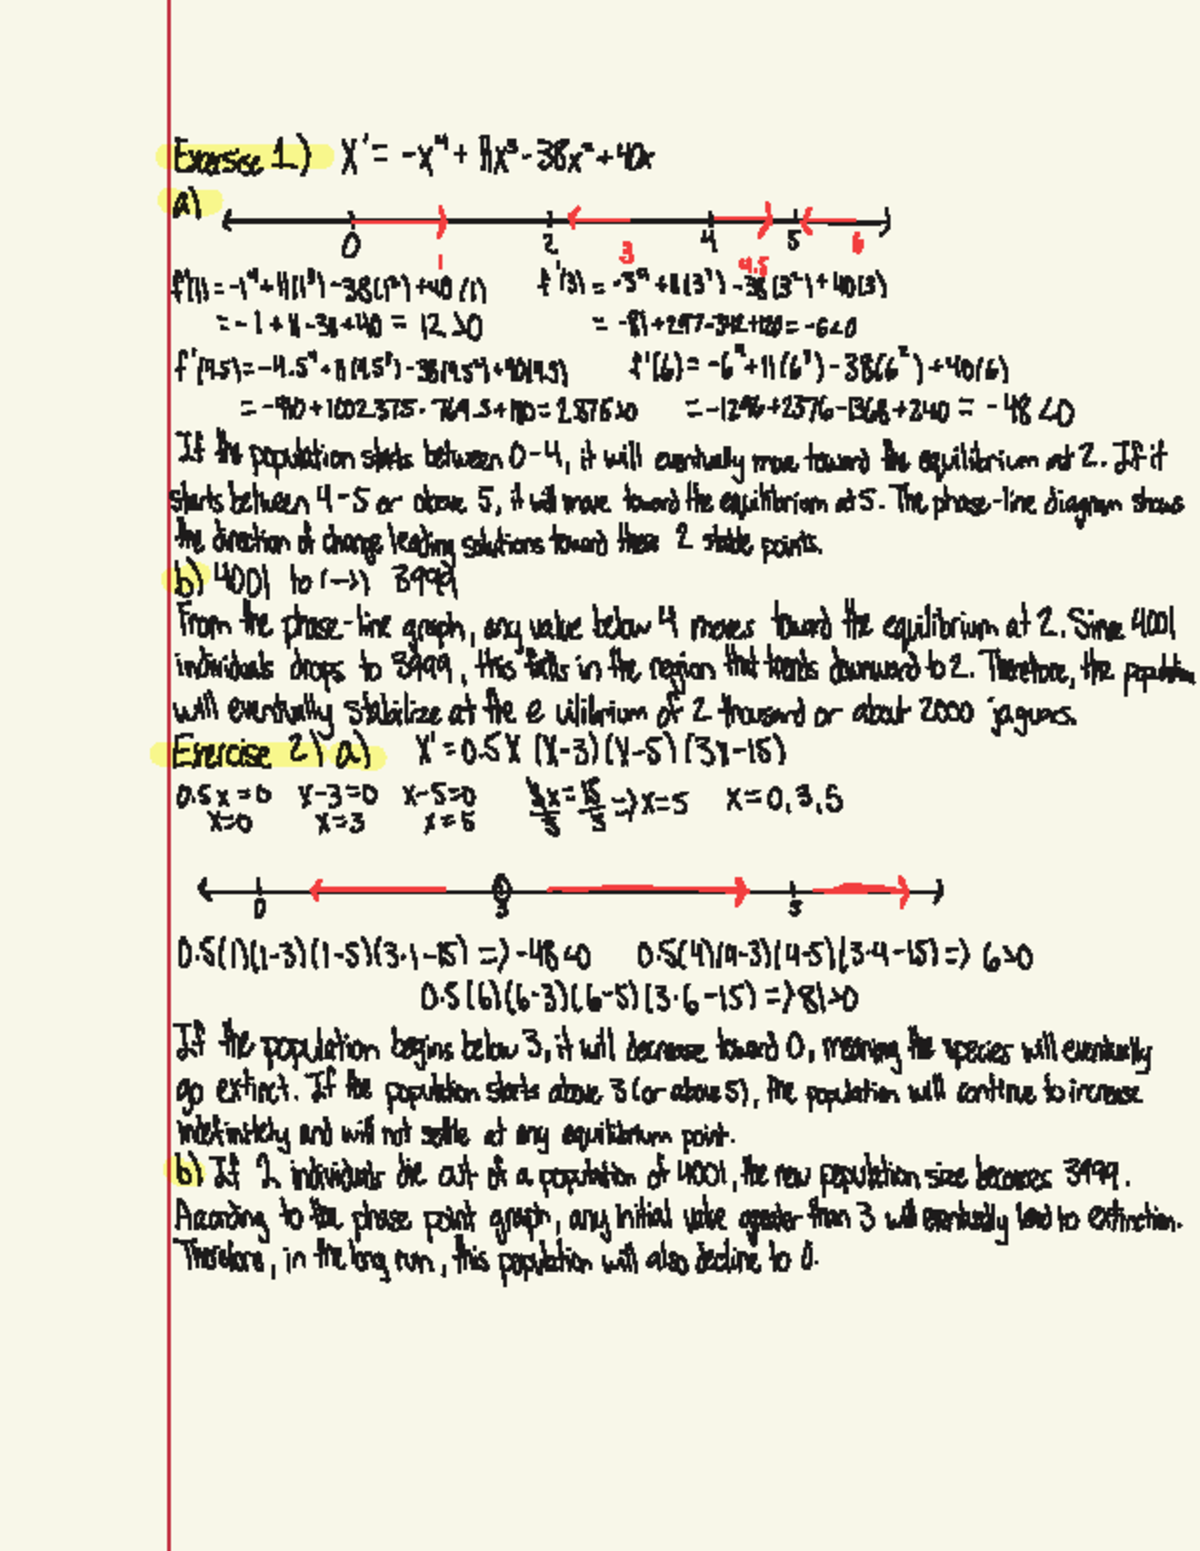 Exersise 1) X' = -x⁴ + 11x³ - 38x² + 40x
a)
0 2 4 5
1 3 4.5 6
f'(1) = -1⁴ + 11(1³) - 38(1²) + 40(1) f'(3) = -3⁴ + 11(3³) - 38(3²) + 40(3)
= -1 + 11 - 38 + 40 = 12 > 0 = -81 + 297 - 342 + 120 = -6 < 0
f'(4.5) = -4.5⁴ + 11(4.5³) - 38(4.5²) + 40(4.5) f'(6) = -6⁴ + 11(6³) - 38(6²) + 40(6)
= -410 + 1002.375 - 769.5 + 180 = 2.876 > 0 = -1296 + 2376 - 1368 + 240 = -48 < 0
If the population starts between 0-4, it will eventually move toward the equilibrium at 2. If it
starts between 4-5 or above 5, it will move toward the equilibrium at 5. The phase-line diagram shows
the direction of change leading solutions toward these 2 stable points.
b) 4001 to (-->) 3999
From the phase-line graph, any value below 4 moves toward the equilibrium at 2. Since 4001
individuals drops to 3999, this falls in the region that trends downward to 2. Therefore, the population
will eventually stabilize at the e uilibrium of 2 thousand or about 2000 jaguars.
Exercise 2) a) X' = 0.5X (X-3)(X-5)(3x-15)
0.5x = 0 X-3=0 X-5=0 3x/3 = 15/3 => X=5 X=0,3,5
x=0 x=3 x=5
0 3 5
0.5(1)(1-3)(1-5)(3·1-15) => -48 < 0 0.5(4)(4-3)(4-5)(3·4-15) => 6 > 0
0.5(6)(6-3)(6-5)(3·6-15) => 81 > 0
If the population begins below 3, it will decrease toward 0, meaning the species will eventually
go extinct. If the population starts above 3 (or above 5), the population will continue to increase
indefinitely and will not settle at any equilibrium point.
b) If 2 individuals die out of a population of 4001, the new population size becomes 3999.
According to the phase point graph, any initial value greater than 3 will eventually lead to extinction.
Therefore, in the long run, this population will also decline to 0.